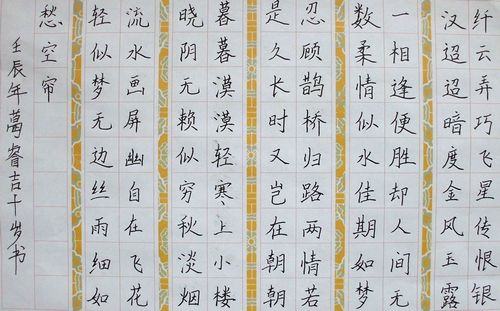 纤云弄巧飞星传恨银
汉迢迢暗度金风玉露
一相逢便胜却人间无
数柔情似水佳期如梦
忍顾鹊桥归路两情若
是久长时又岂在朝朝
暮暮漠漠轻寒上小楼
晓阴无赖似穷秋淡烟
流水画屏幽自在飞花
轻似梦无边丝雨细如
愁空帘
壬辰年萬睿吉十岁书